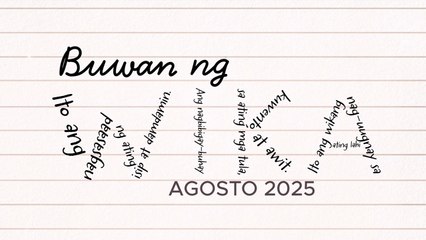 Buwan ng
Ito ang
ng ating
isip at damdamin.
Ang nagbibigay-buhay
sa ating mga tula,
kuwento at awit.
Ito ang wikang
nag-uugnay sa
ating lahi
AGOSTO 2025